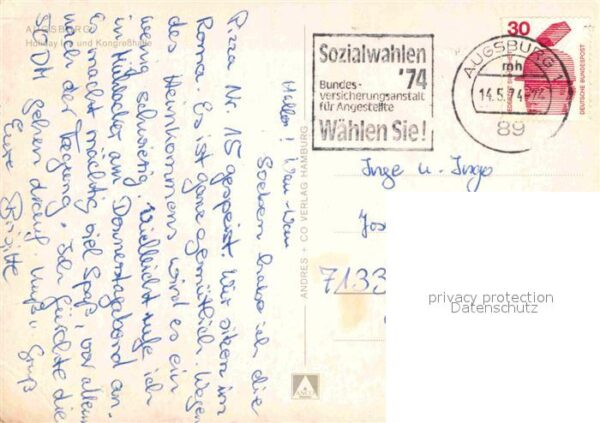 AUGSBURG
Holiday Inn und Kongreßhalle
Hallo! Wau-Wau
Soeben habe ich die
Pizza Nr. 15 gespeist. Wir sitzen im
Roma. Es ist ganz gemütlich. Wegen
des Heimkommens wird es ein
wenig schwierig. Vielleicht rufe ich
in am Donnerstagabend an.
Es macht mächtig viel Spaß, vor allem
nach der Tagung. Ich fürchte die
50 DM gehen drauf. Kuß, Gruß
Eure Brigitte
ANDRES + CO VERLAG HAMBURG
ANCO
Sozialwahlen
'74
Bundes-
versicherungsanstalt
für Angestellte
Wählen Sie!
AUGSBURG 1
mh
14.5.74-21
89
30
DEUTSCHE BUNDESPOST
Inge u. Ingo
Jos
7133
privacy protection
Datenschutz